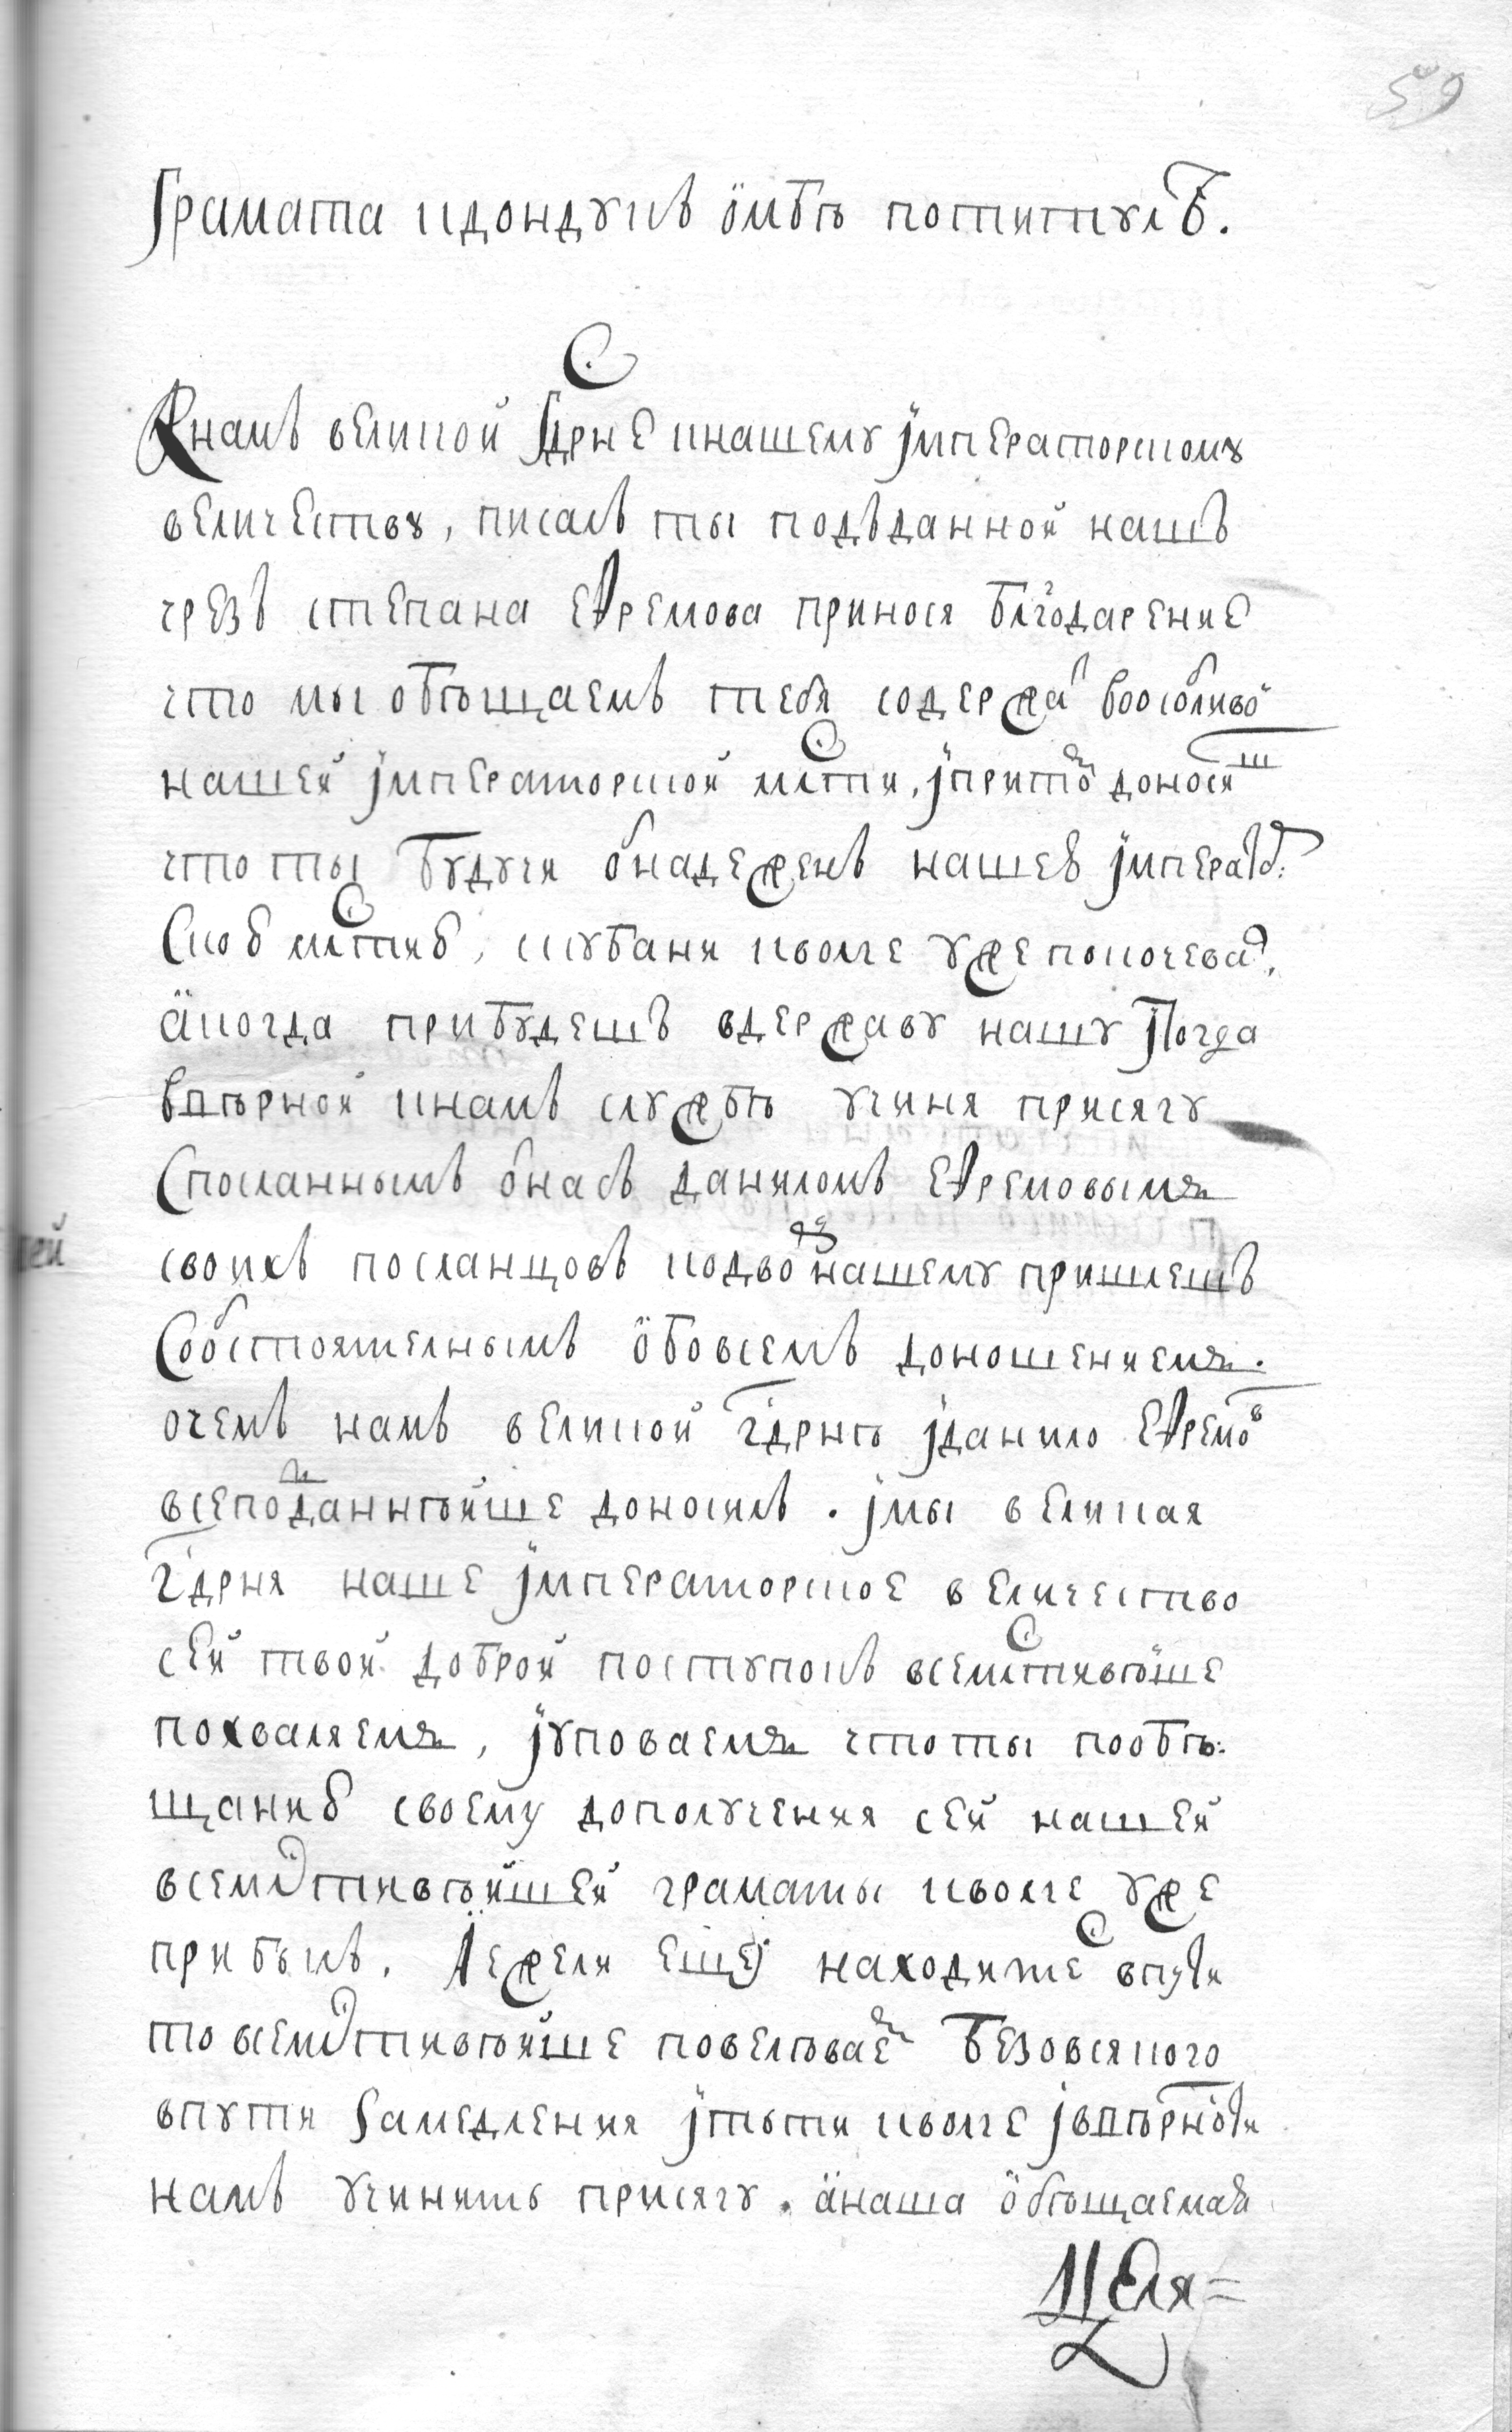 59
Грамата кдондукъ омбѣ потитулѣ.
Кнамъ великой Гдрне кнашему императорскому
величеству, писалъ ты подъданной нашъ
чрезъ степана ефремова принося блгодарение
что мы обѣщаемъ тебя содержать восо­бливой
нашей императорской млсти, ипритом доносиш
что ты будучи обнадеженъ нашею император:
скою млстию, скубани кволге уже покочевал,
а когда прибудешъ вдержаву нашу тогда
ввѣрной кнамъ службѣ учиня присягу
спосланнымъ отнасъ даниломъ ефремовымъ
своихъ посланцовъ кодвору нашему пришлешъ
собстоятелнымъ обовсемъ доношениемъ.
очемъ намъ великой гдрнѣ иданило ефремов
всеподаннѣйше доносилъ. имы великая
гдрня наше императорское величество
сей твой доброй поступокъ всемлстивѣйше
похваляемъ, иуповаемъ что ты пообѣ:
щанию своему дополучения сей нашей
всемлстивѣйшей граматы кволге уже
прибылъ. Аежели еще находитеся впути
то всемлстивѣйше повелѣваем безовсякого
впути замедления итьти кволге ивѣрности
намъ учинить присягу. анаша обѣщаемая
Целя=
ей